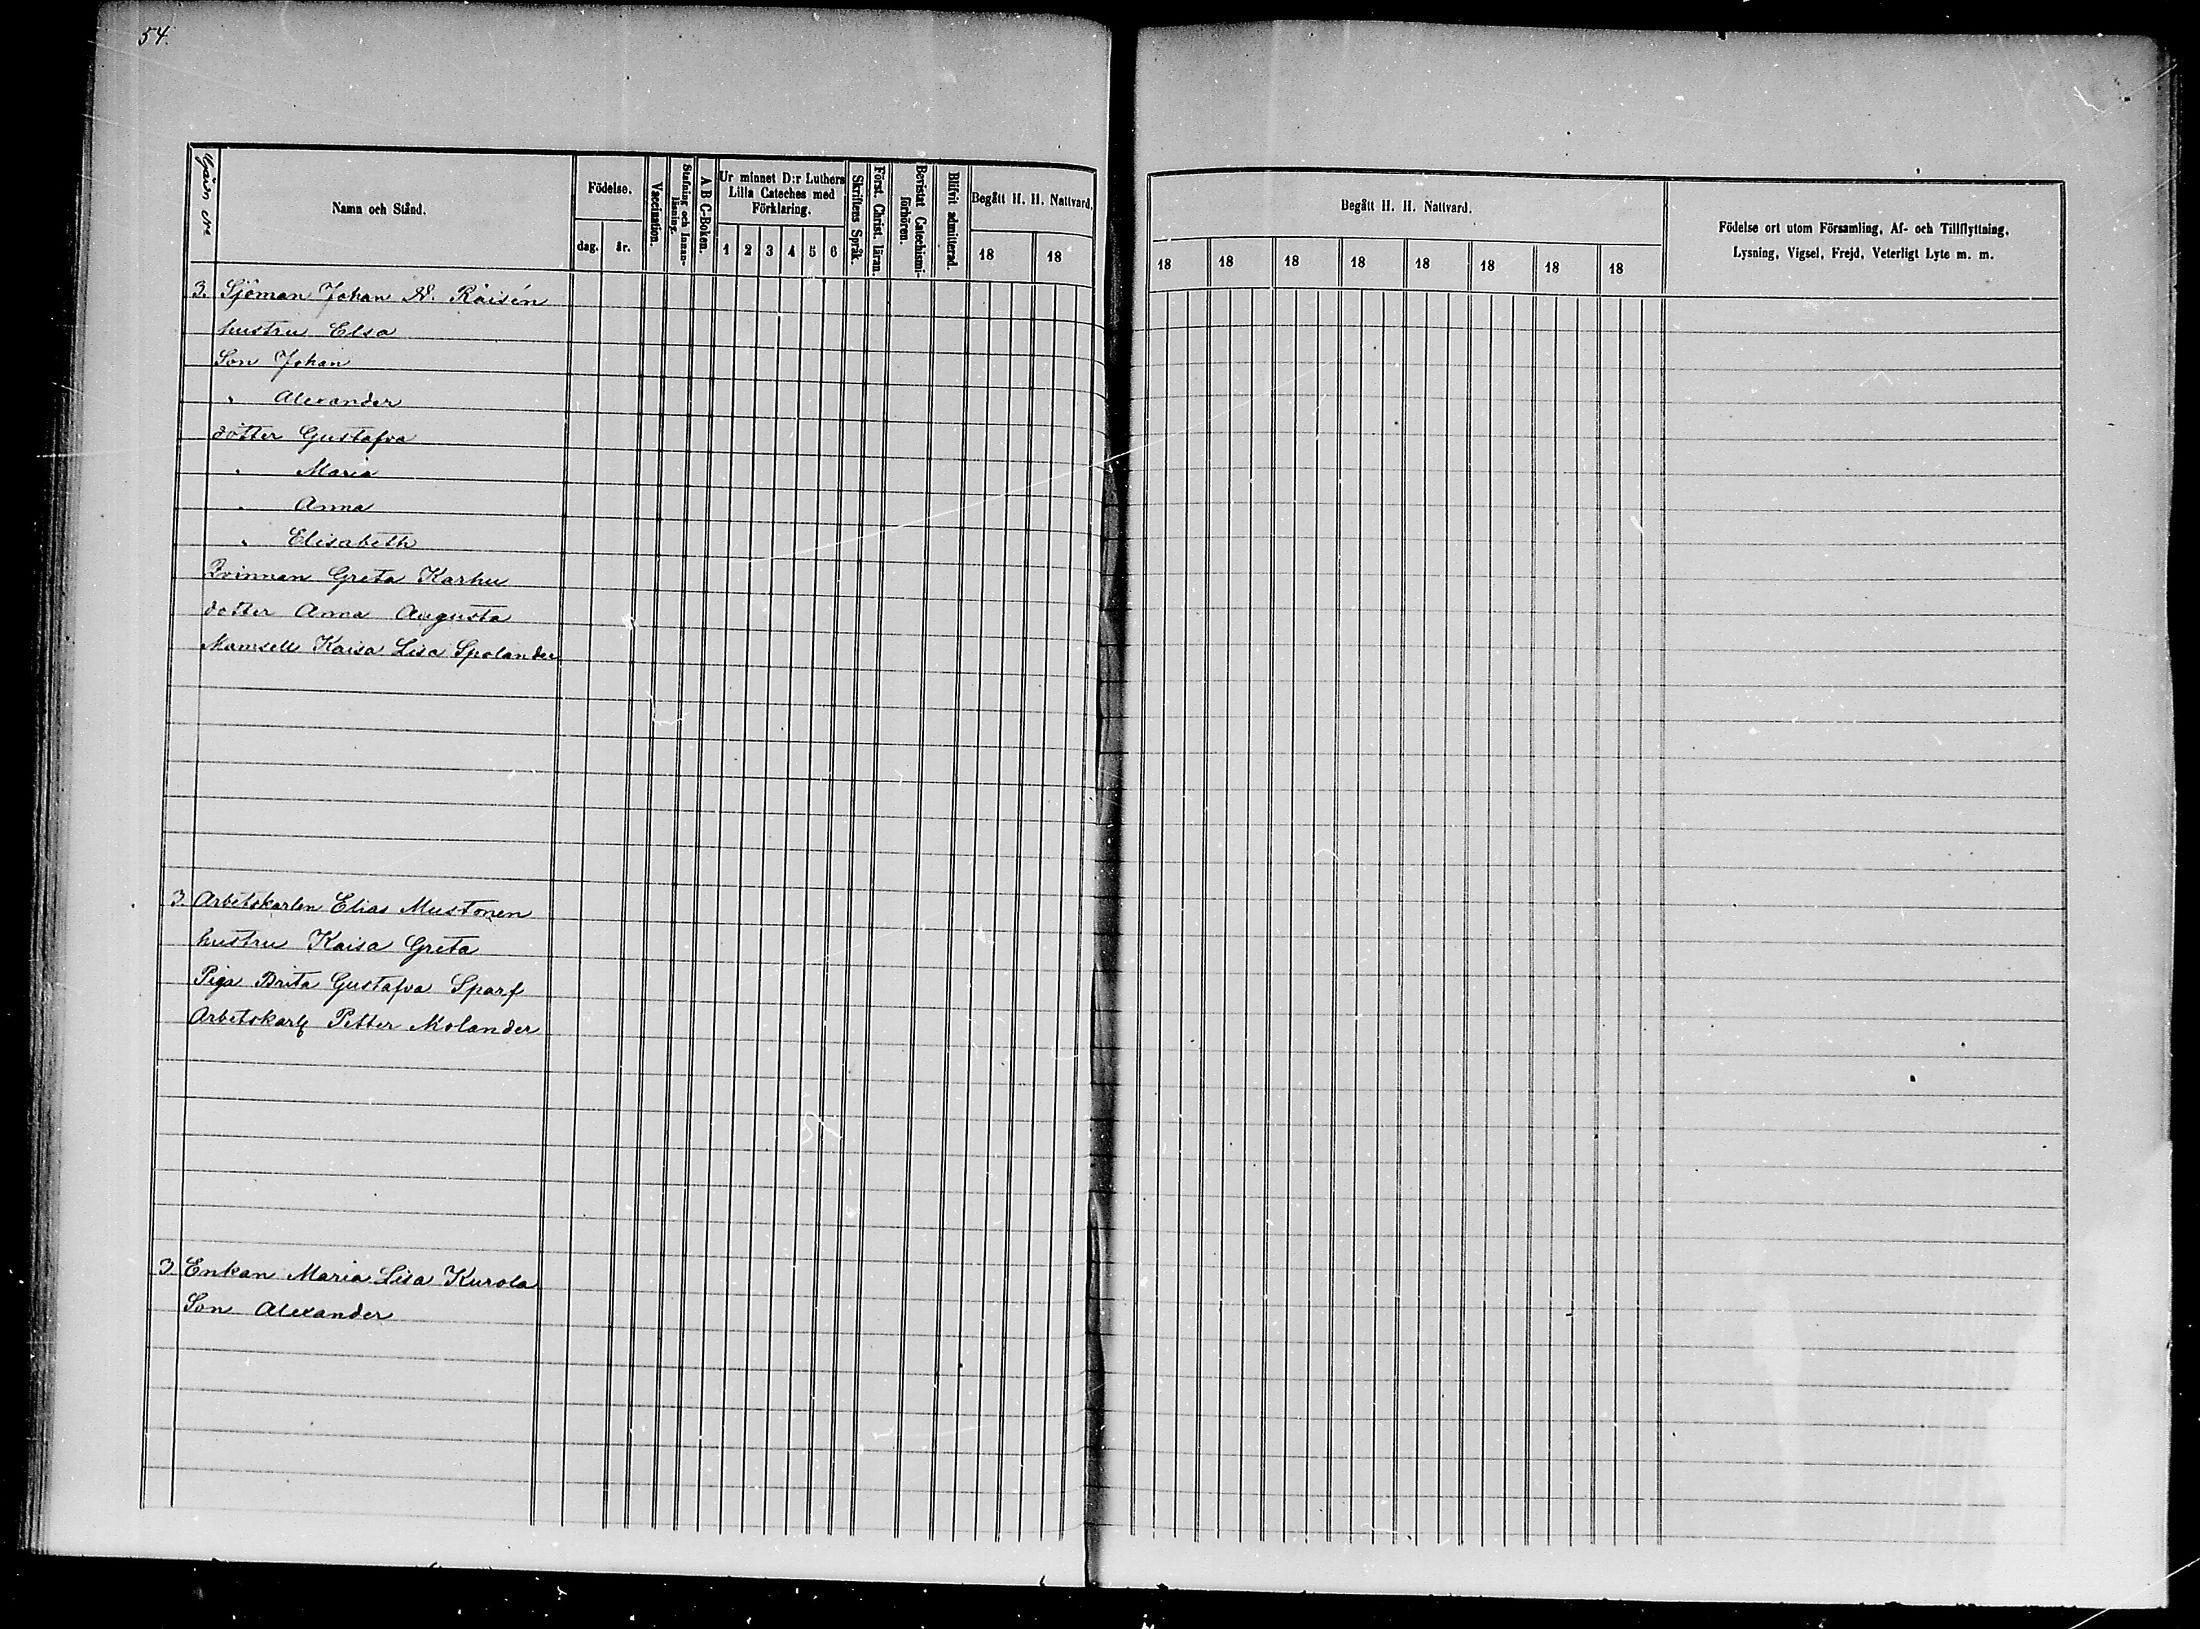 54.
Gård N:o
Namn och Stånd.
Födelse.
dag.
år.
Vaccination.
Stafning och Innan-
läsning.
A B C-Boken.
Ur minnet D:r Luthers
Lilla Cateches med
Förklaring.
1 2 3 4 5 6
Skriftens Språk.
Först. Christ. läran.
Bevistat Catechismi-
förhören.
Blifvit admitterad.
Begått H. H. Nattvard.
18 18
Begått H. H. Nattvard.
18 18 18 18 18 18 18 18
Födelse ort utom Församling, Af- och Tillflyttning,
Lysning, Vigsel, Frejd, Veterligt Lyte m. m.
3. Sjöman Johan N. Räisén
hustru Elsa
Son Johan
" Alexander
dotter Gustafva
" Maria
" Anna
" Elisabeth
Qvinnan Greta Karhu
dotter Anna Augusta
Mamsell Kaisa Lisa Spolander
3. Arbetskarlen Elias Mustonen
hustru Kaisa Greta
Piga Brita Gustafva Sparf
Arbetskarl Petter Molander
3. Enkan Maria Lisa Kurola
Son Alexander